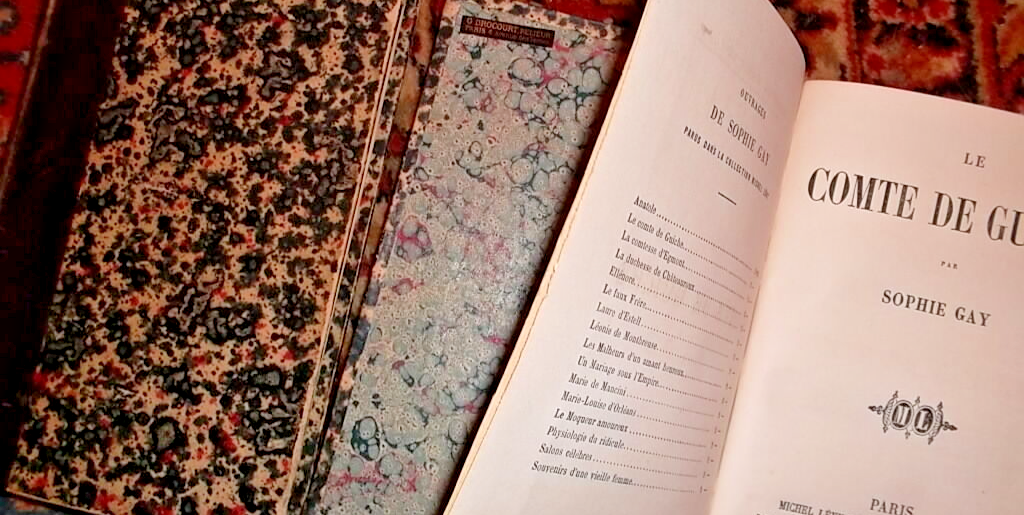 O. DROCOURT, RELIEUR
PARIS
OUVRAGES
DE SOPHIE GAY
PARUS DANS LA COLLECTION MICHEL
Anatole
Le comte de Guiche
La comtesse d'Egmont
La duchesse de Châteauroux
Ellénore
Le faux Frère
Laure d'Estell
Léonie de Montbreuse
Les Malheurs d'un amant heureux
Un Mariage sous l'Empire
Marie de Mancini
Marie-Louise d'Orléans
Le Moqueur amoureux
Physiologie du ridicule
Salons célèbres
Souvenirs d'une vieille femme
LE
COMTE DE GU
PAR
SOPHIE GAY
PARIS
MICHEL LÉV